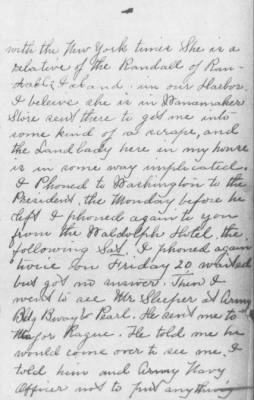 with the New York times She is a
relative of the Randall of Ran-
dalls Island. in our Harbor.
I beleive she is in Wanamakers
Store sent there to get me into
some kind of a scrape, and
the Landlady here in my house
is in some way implicated.
I Phoned to Washington to the
President, the Monday before he
left I phoned again to you
from the Waldolph Hotel, the
following Sat. I phoned again
twice on Friday 20 waited
but got no answer. Then I
went to see Mr Sleeper at Army
Bldg Bway & Pearl. He sent me to
Major Rague. He told me he
would come over to see me, I
told him and Army Navy
Officer not to put anything